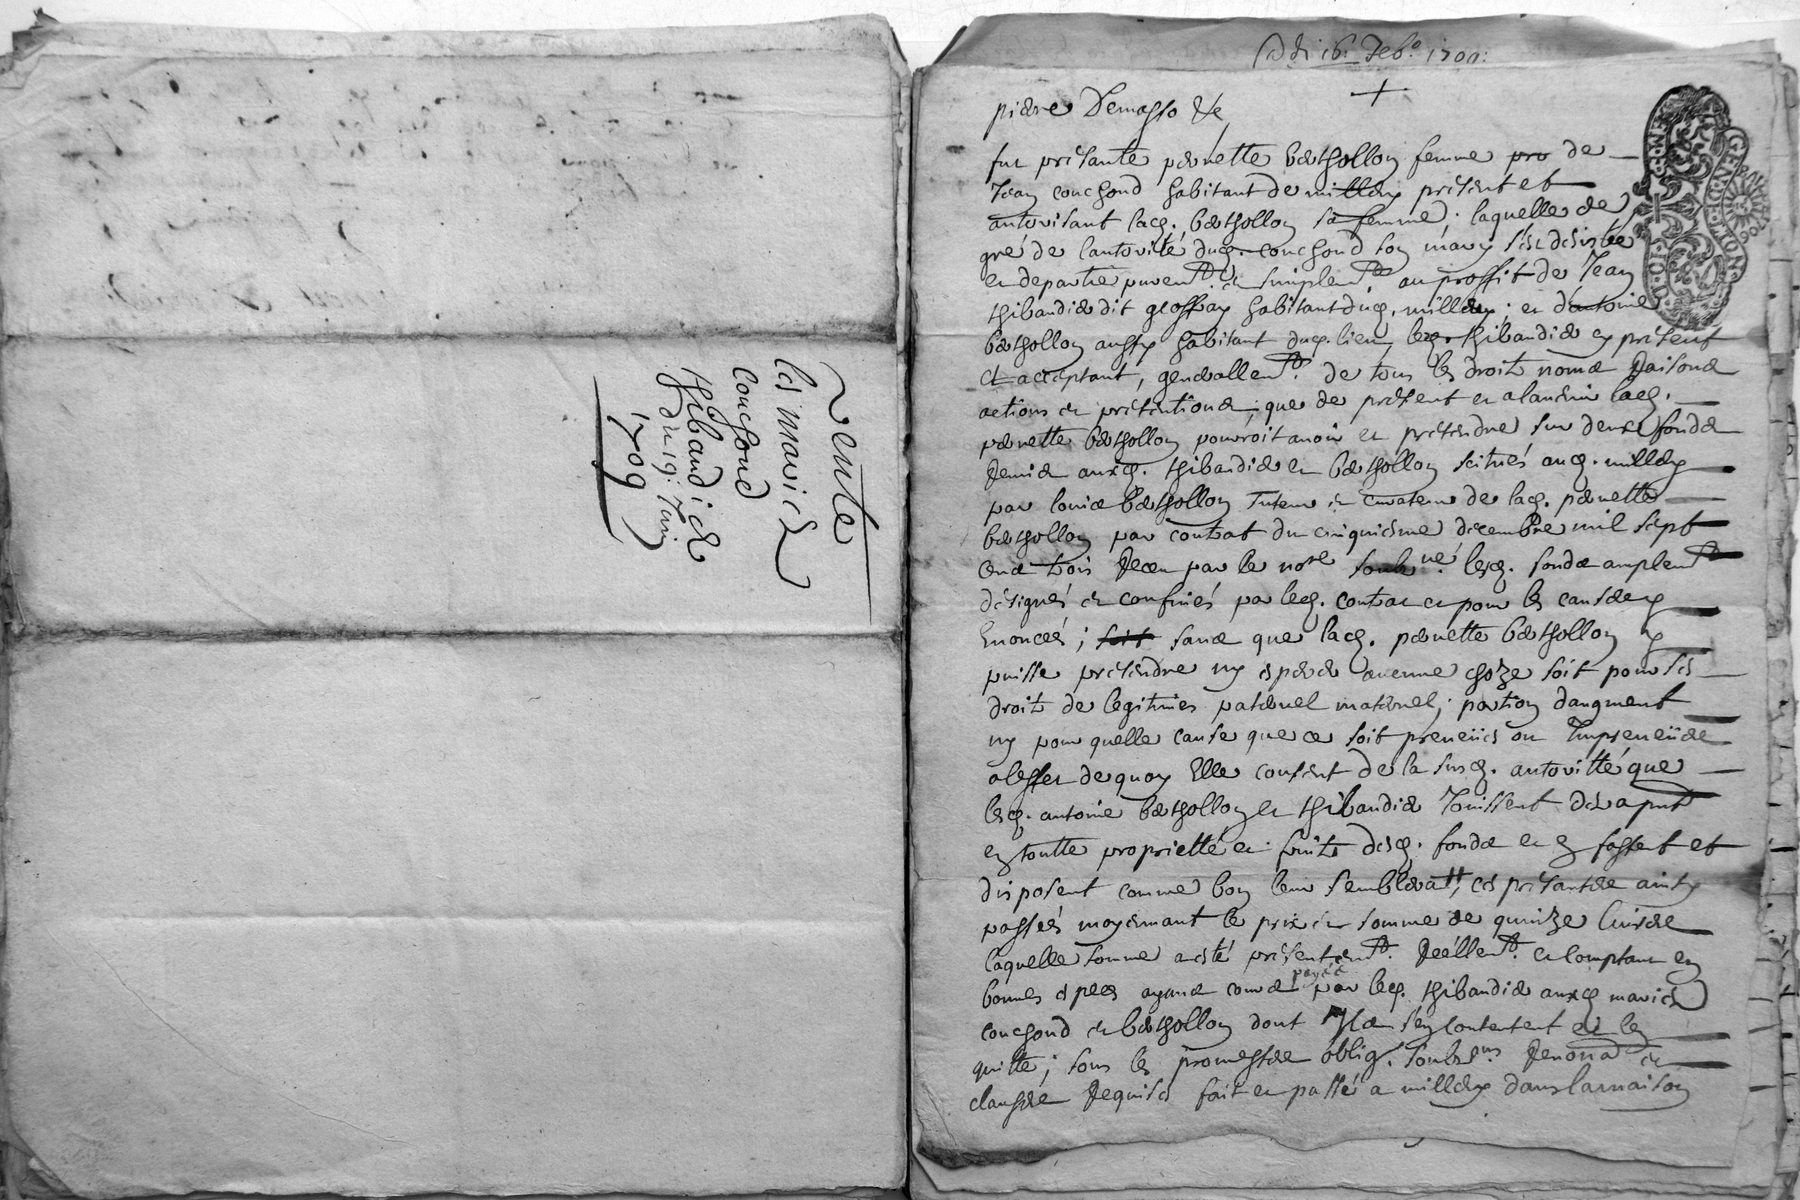 Vente
les mariés
Couchoud
Thibaudier
du 19: Juin
1709
pierre Demasso &c
fut présante pernette berthollon femme de
Jean couchoud habitant de millery présent et
autorisant lad. berthollon sa femme; laquelle de
gré de lautorité dud. couchoud son mary sest desistée
et departie purem.t et simplem.t au proffit de Jean
thibaudier dit geoffray habitant dud. millery; et dantoine
berthollon aussy habitant dud. lieu, led. thibaudier cy présent
et acceptant, generallem.t de tous les droits noms Raisons
actions et prétentions, que de présent et aladvenir lad.
pernette berthollon pourroit avoir et prétendre sur deux fonds
Remis auxd. thibaudier et berthollon scitués aud. millery
par louis berthollon Tuteur et curateur de lad. pernette
berthollon par contrat du cinquiesme decembre mil sept
cens trois Receu par le no.re soubs.né lesd. fonds amplem.t
désignés et confinés par led. contrat et pour les causes y
Enoncées; sans que lad. pernette berthollon y
puisse prétendre ny esperer aucune choze soit pour ses
droits de legitimes paternel maternel, portion daugment
ny pour quelle cause que ce soit preveües ou Impreveües
aleffet de quoy Elle consent de la susd. autoritté que
lesd. antoine berthollon et thibaudier Jouissent dès apnt
en toutte proprietté et fruits desd. fonds et en fassent et
disposent comme bon leur semblera, ces présantes ainsy
passées moyennant le prix et somme de quinze livres
laquelle somme a esté présentem.t Réellem.t et comptant en
bonnes espèces ayans cours payée par led. thibaudier auxd mariés
couchoud et berthollon dont Ils sen contentent et len
quitte; sous les promesses oblig. soubs.ons Renon.ons et
clauses Requises fait et passé a millery dans la maison